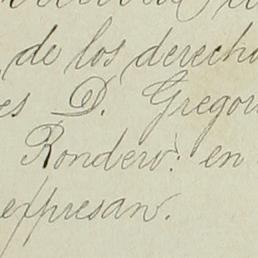 de los derecho
es D. Gregor
Rondero: en
expresan.